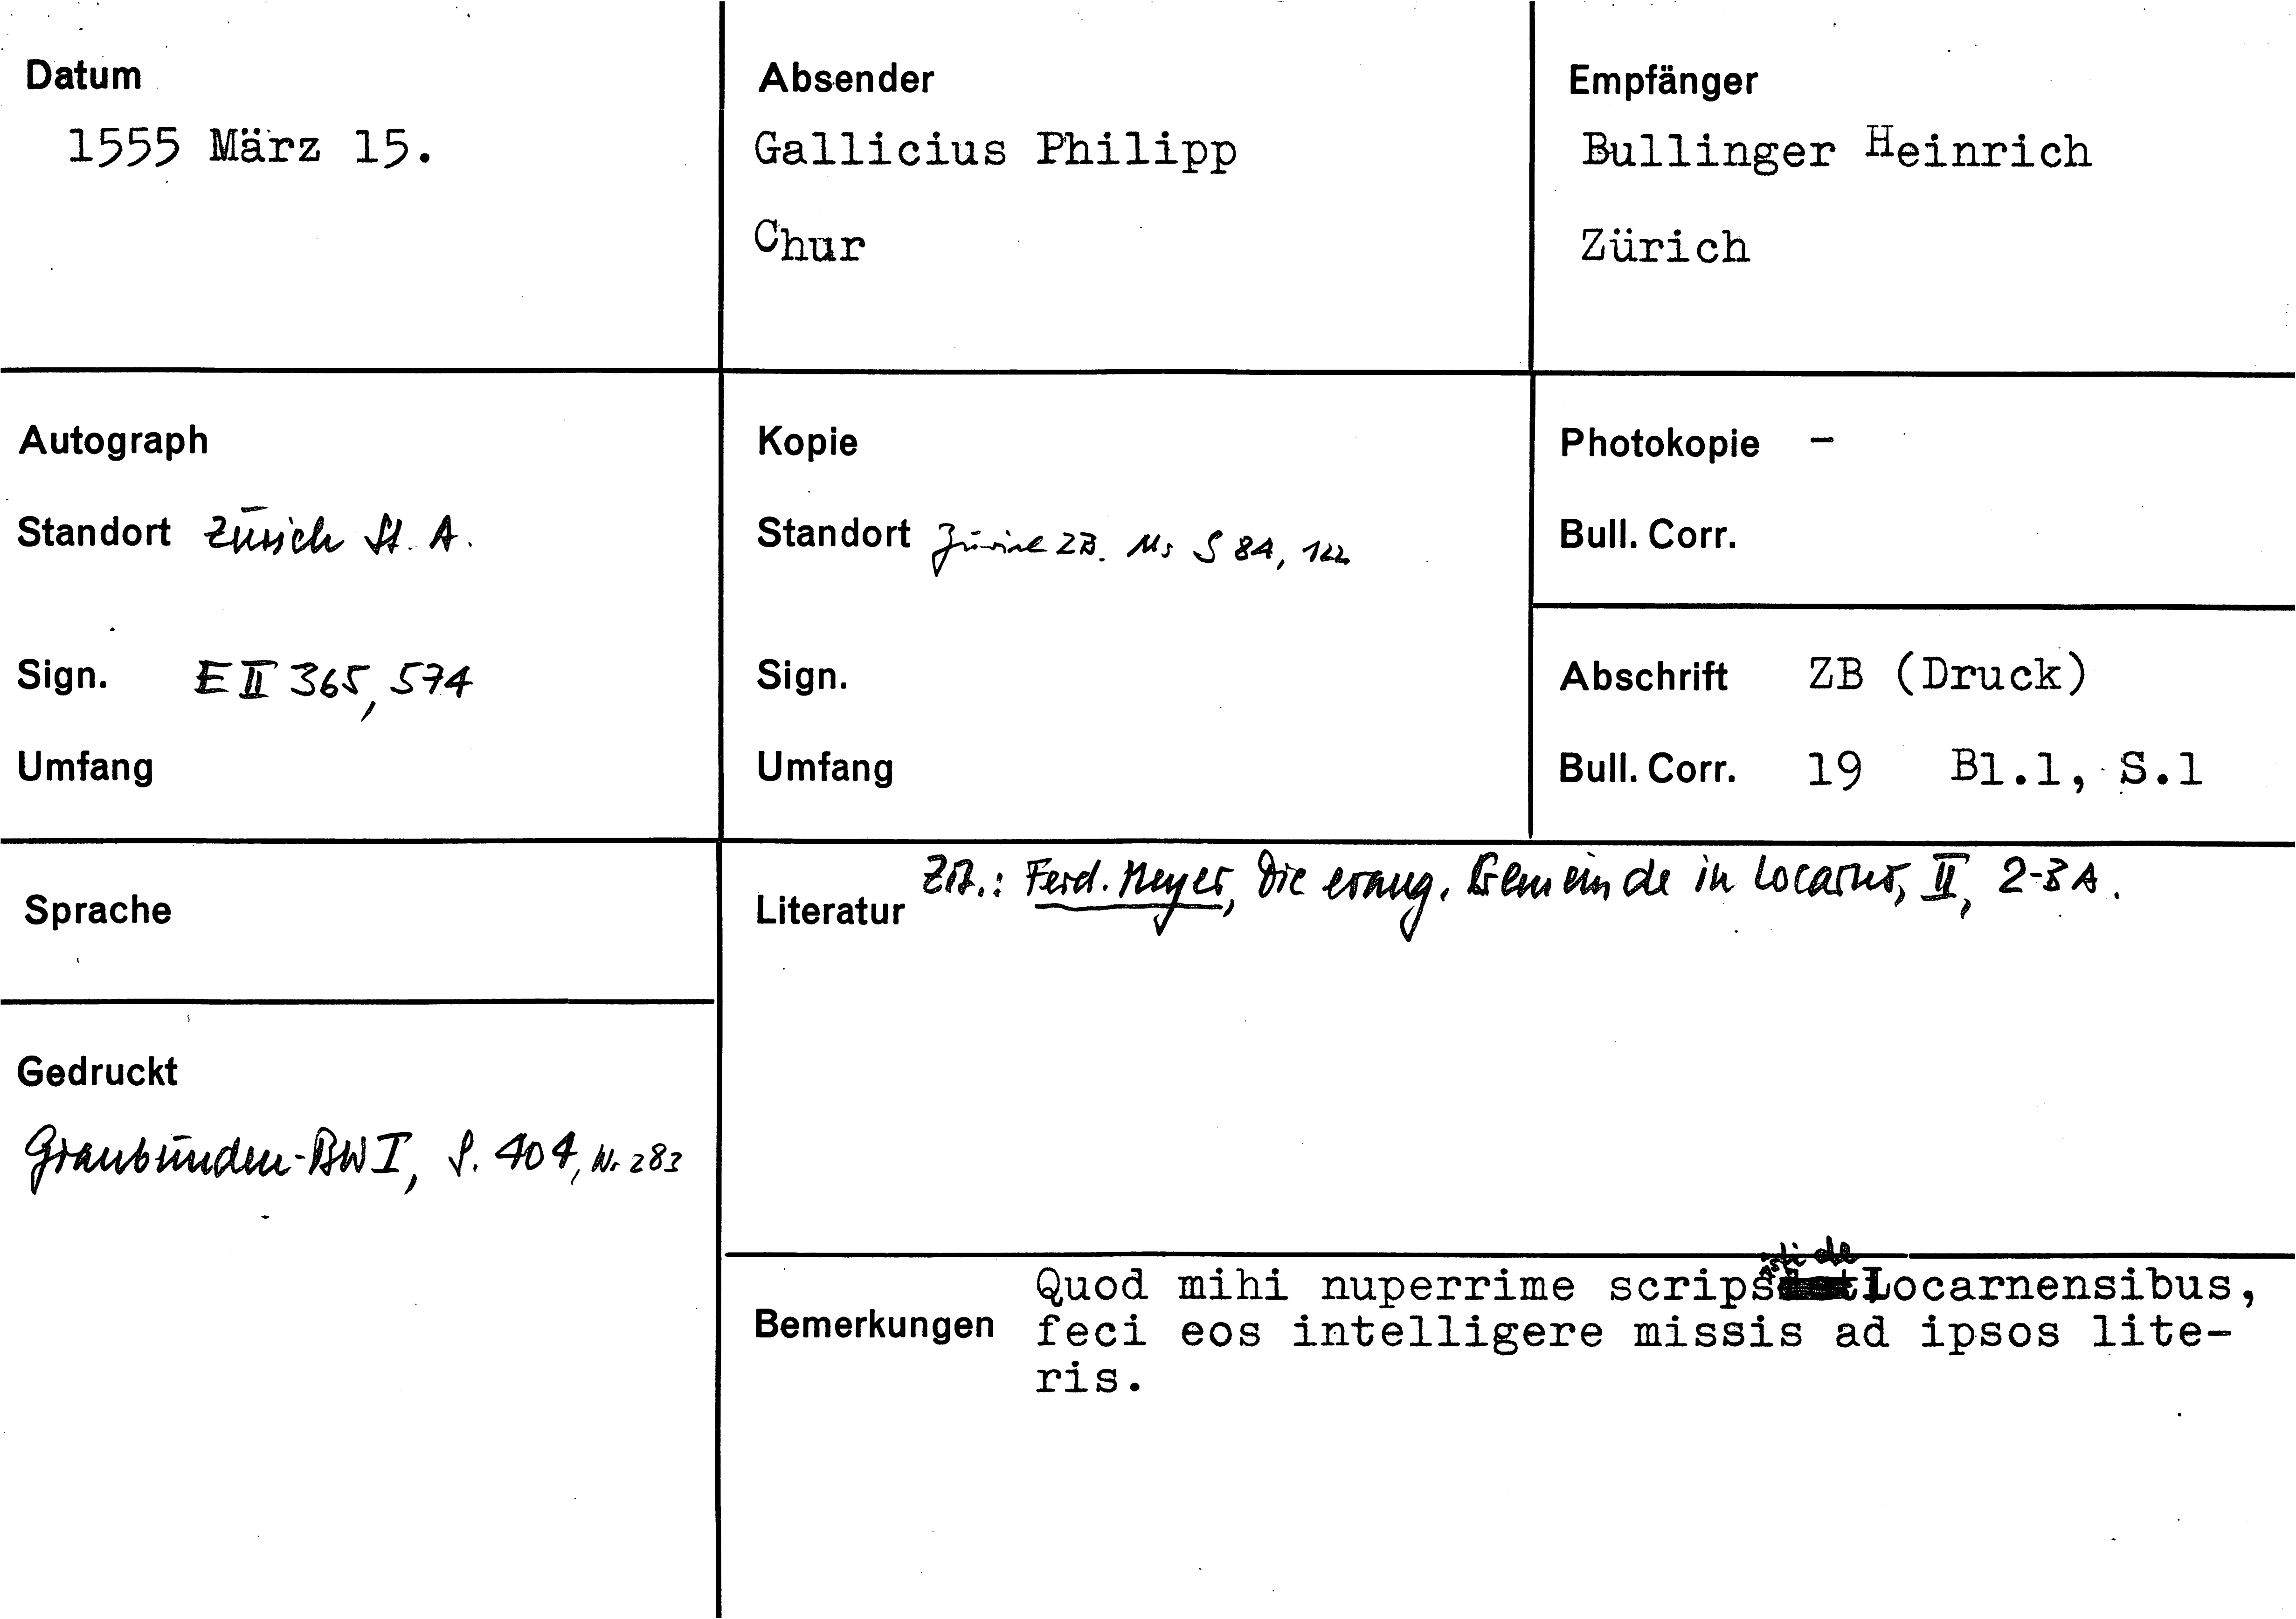 Datum
1555 März 15.
Absender
Gallicius Philipp
Chur
Empfänger
Bullinger Heinrich
Zürich
Autograph
Standort Zürich St. A.
Sign. E II 365, 574
Umfang
Kopie
Standort Zürich ZB. Ms S 84, 122
Sign.
Umfang
Photokopie -
Bull. Corr.
Abschrift ZB (Druck)
Bull. Corr. 19 Bl.1, S.1
Sprache
Gedruckt
Graubünden-BW I, S. 404, Nr 283
Literatur Zit.: Ferd. Meyer, Die evang. Gemeinde in Locarno, II, 2-3 A.
Bemerkungen
Quod mihi nuperrime scripsisti de Locarnensibus,
feci eos intelligere missis ad ipsos lite-
ris.